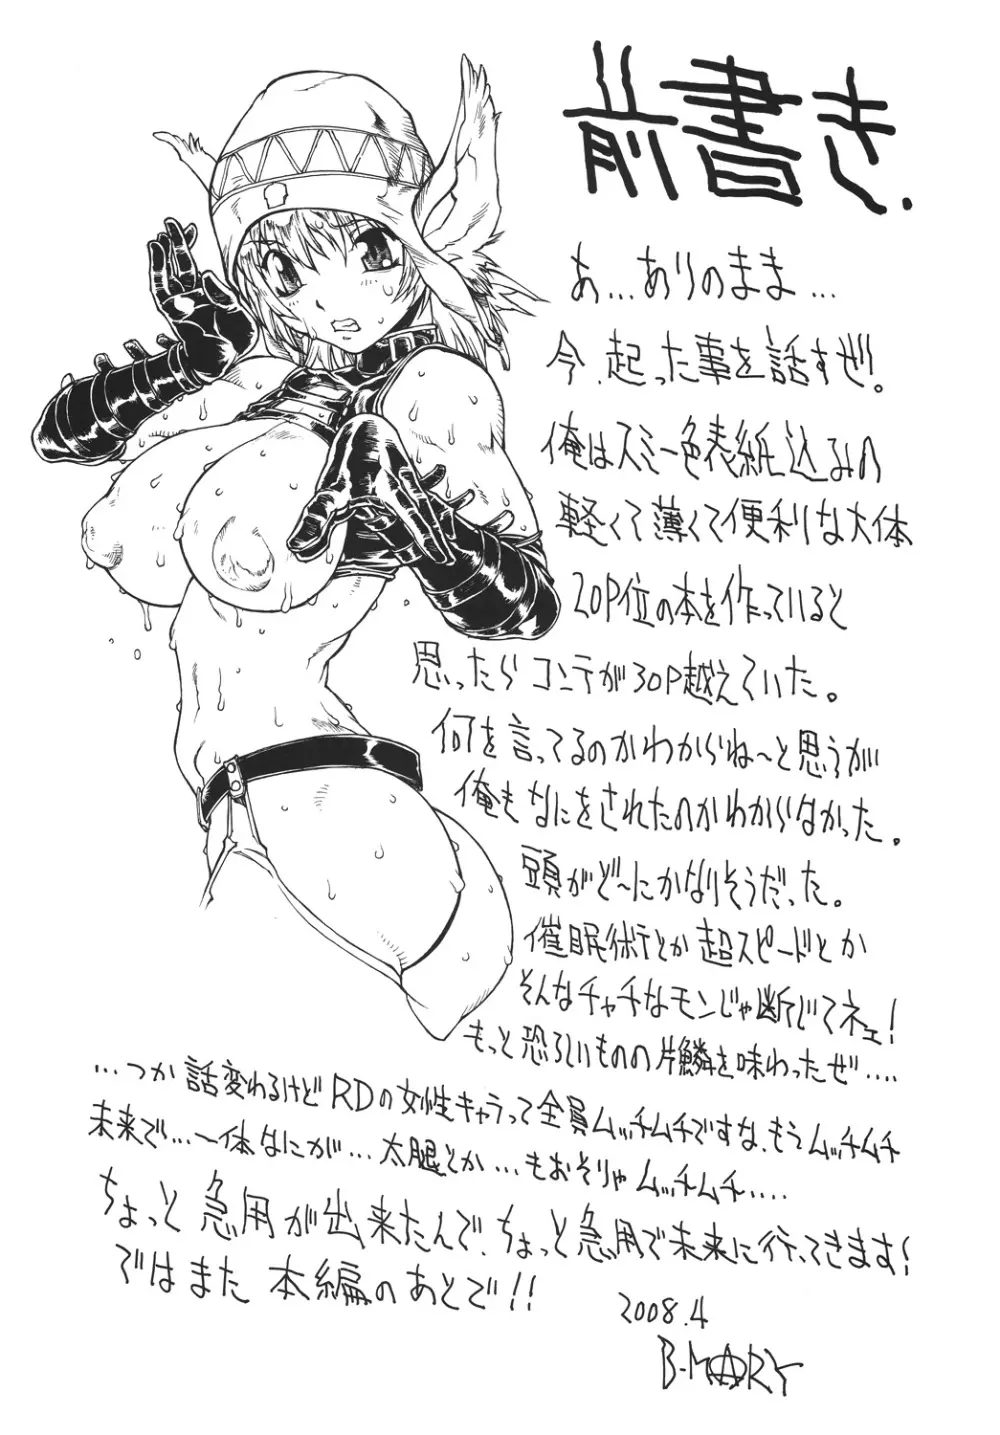 前書き.
あ…ありのまま…
今、起った事を話すぜ!。
俺はスミ一色表紙込みの
軽くて薄くて便利な大体
20P位の本を作っていると
思ったらコンテが30P越えていた。
何を言ってるのかわからね〜と思うが
俺もなにをされたのかわからなかった。
頭がど〜にかなりそうだった。
催眠術とか超スピードとか
そんなチャチなモンじゃ断じてネェ!
もっと恐ろしいものの片鱗を味わったぜ....
…つか話変わるけどRDの女性キャラって全員ムッチムチですな、もうムッチムチ
未来で…一体なにが…太腿とか…もおそりゃムッチムチ....
ちょっと急用が出来たんで、ちょっと急用で未来に行ってきます!
ではまた本編のあとで!!
2008.4
B-MARY